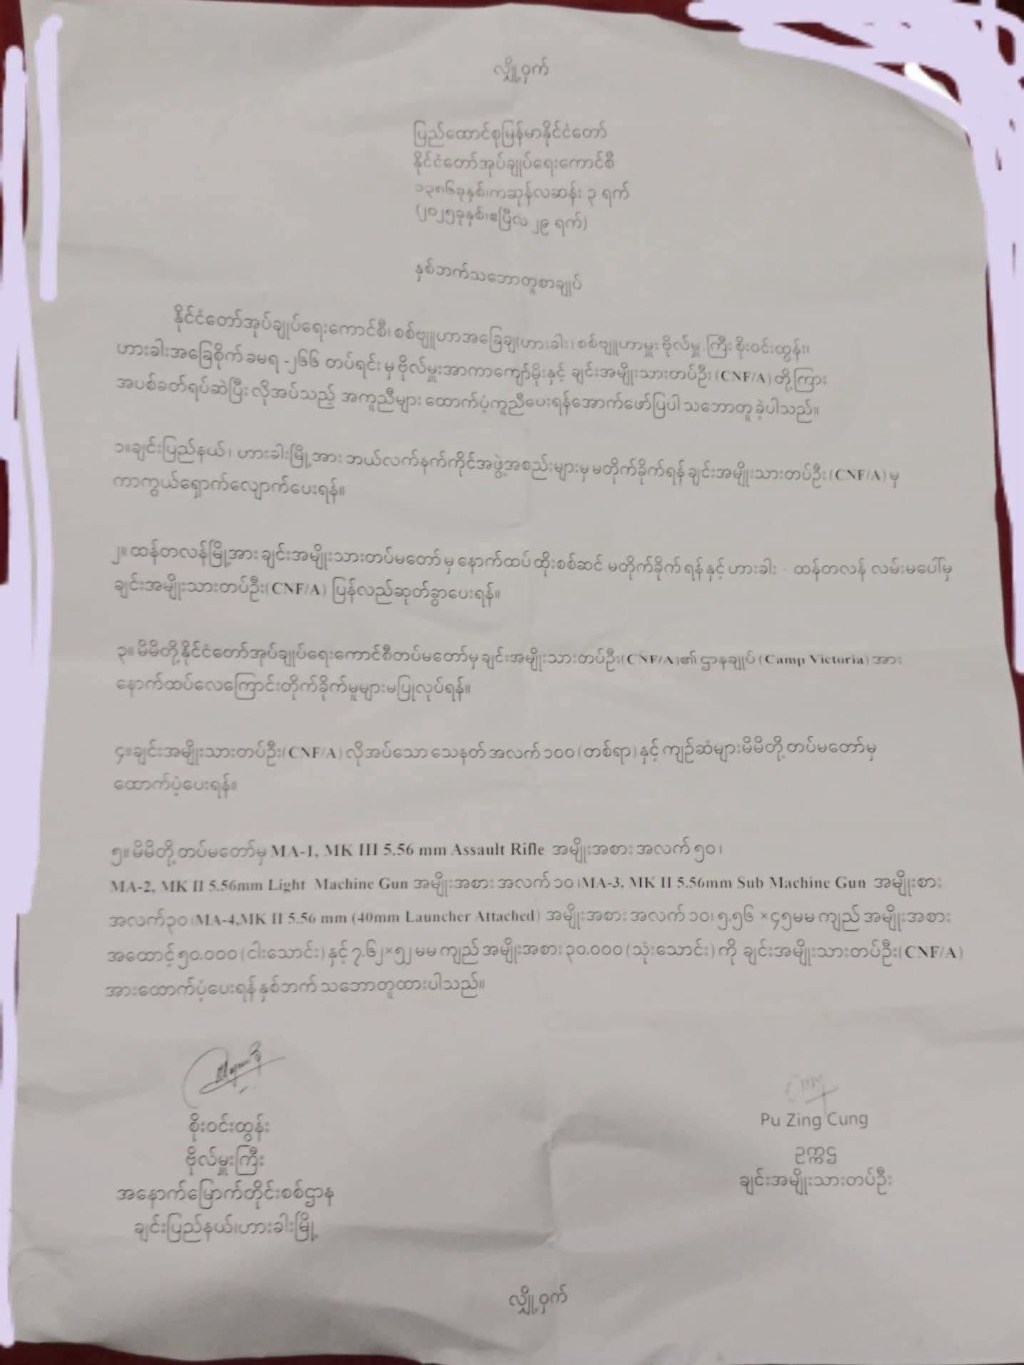 လျှို့ဝှက်
ပြည်ထောင်စုမြန်မာနိုင်ငံတော်
နိုင်ငံတော်အုပ်ချုပ်ရေးကောင်စီ
၁၃၈၆ခုနှစ်၊ကဆုန်လဆန်း ၃ ရက်
(၂၀၂၅ခုနှစ်၊ဧပြီလ ၂၉ ရက်)
နှစ်ဘက်သဘောတူစာချုပ်
နိုင်ငံတော်အုပ်ချုပ်ရေးကောင်စီ၊ စစ်ဗျူဟာအခြေချ(ဟားခါး)၊ စစ်ဗျူဟာမှူး ဗိုလ်မှူးကြီး စိုးဝင်းထွန်း၊
ဟားခါးအခြေစိုက် ခမရ -၂၆၆ တပ်ရင်း မှ ဗိုလ်မှူးအာကာကျော်မိုးနှင့် ချင်းအမျိုးသားတပ်ဦး (CNF/A) တို့ကြား
အပစ်ခတ်ရပ်ဆဲပြီး လိုအပ်သည့် အကူညီများ ထောက်ပံ့ကူညီပေးရန်အောက်ဖော်ပြပါ သဘောတူ ခဲ့ပါသည်။
၁။ချင်းပြည်နယ်၊ ဟားခါးမြို့အား ဘယ်လက်နက်ကိုင်အဖွဲ့အစည်းများမှ မတိုက်ခိုက်ရန် ချင်းအမျိုးသားတပ်ဦး (CNF/A) မှ
ကာကွယ်ရှောက်လျှောက်ပေးရန်။
၂။ ထန်တလန်မြို့အား ချင်းအမျိုးသားတပ်မတော် မှ နောက်ထပ် ထိုးစစ်ဆင် မတိုက်ခိုက် ရန် နှင့် ဟားခါး - ထန်တလန် လမ်းမပေါ်မှ
ချင်းအမျိုးသားတပ်ဦး( CNF/A) ပြန်လည်ဆုတ်ခွာပေးရန်။
၃။ မိမိတို့နိုင်ငံတော်အုပ်ချုပ်ရေးကောင်စီတပ်မတော်မှ ချင်းအမျိုးသားတပ်ဦး(CNF/A)၏ ဌာနချုပ် (Camp Victoria) အား
နောက်ထပ်လေကြောင်းတိုက်ခိုက်မှုများမပြုလုပ်ရန်။
၄။ချင်းအမျိုးသားတပ်ဦး(CNF/A) လိုအပ်သော သေနတ် အလက် ၁၀၀ (တစ်ရာ) နှင့် ကျဉ်ဆံများမိမိတို့ တပ်မတော်မှ
ထောက်ပံ့ပေးရန်။
၅။ မိမိတို့ တပ်မတော်မှ MA-1, MK III 5.56 mm Assault Rifle အမျိုးအစား အလက် ၅၀၊
MA-2, MK II 5.56mm Light Machine Gun အမျိုးအစား အလက် ၁၀ ၊MA-3, MK II 5.56mm Sub Machine Gun အမျိုးစား
အလက်၃၀ ၊MA-4,MK II 5.56 mm (40mm Launcher Attached) အမျိုးအစား အလက် ၁၀၊ ၅.၅၆ ×၄၅မမ ကျည် အမျိုးအစား
အထောင့် ၅၀,၀၀၀ ( ငါးသောင်း) နှင့် ၇.၆၂×၅၂ မမ ကျည် အမျိုးအစား ၃၀,၀၀၀ (သုံးသောင်း) ကို ချင်းအမျိုးသားတပ်ဦး( CNF/A)
အားထောက်ပံ့ပေးရန် နှစ်ဘက် သဘောတူထားပါသည်။
စိုးဝင်းထွန်း
ဗိုလ်မှူးကြီး
အနောက်မြောက်တိုင်းစစ်ဌာန
ချင်းပြည်နယ်၊ဟားခါးမြို့
Pu Zing Cung
ဥက္ကဌ
ချင်းအမျိုးသားတပ်ဦး
လျှို့ဝှက်